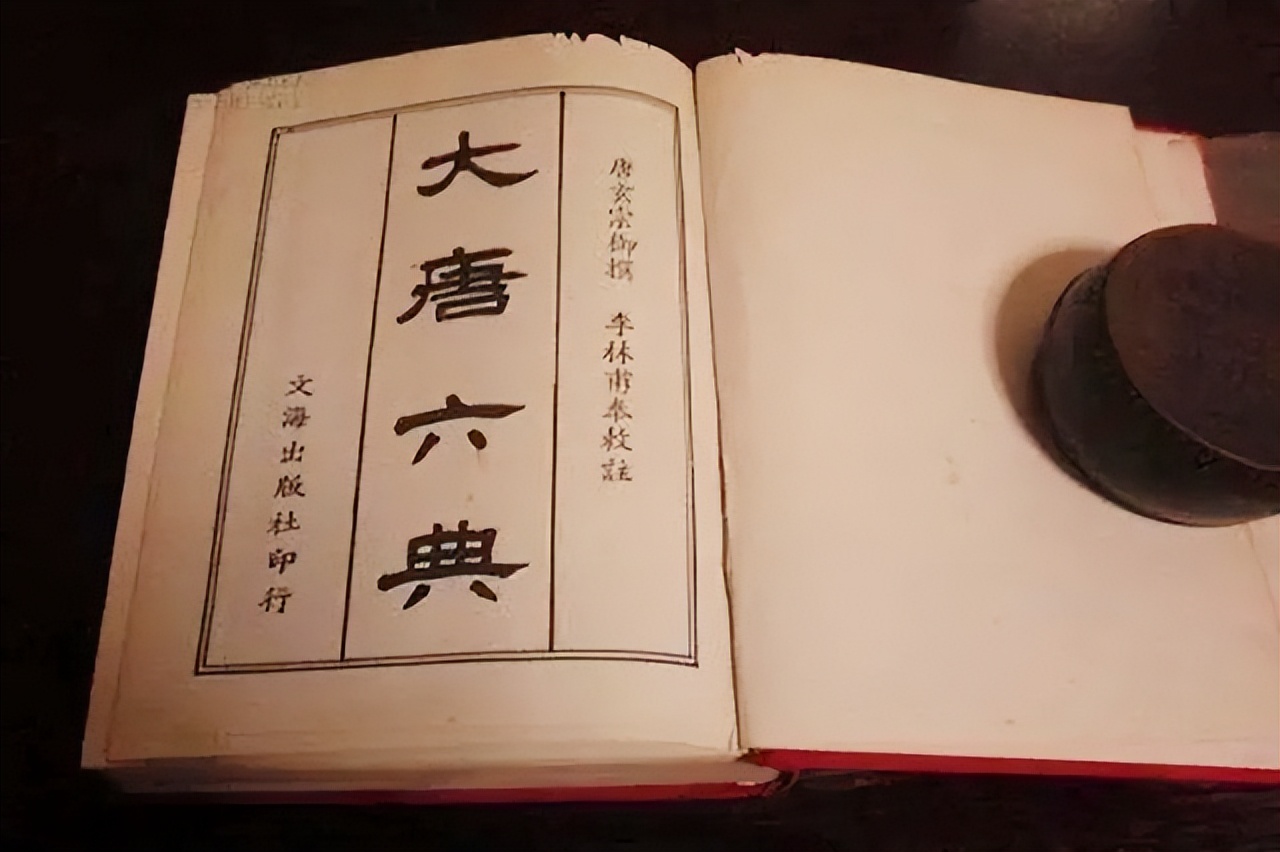 唐玄宗御撰 李林甫奉敕註
大唐六典
文海出版社印行